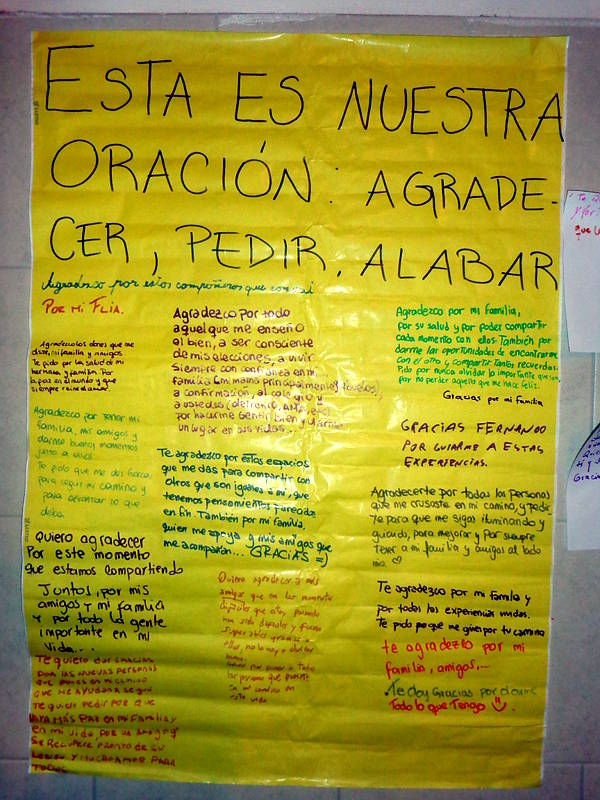 ESTA ES NUESTRA
ORACIÓN: AGRADE-
CER, PEDIR, ALABAR
Agradezco por estos compañeros que
POR MI FLIA.
Agradezco los dones que me
diste, mi familia y amigos
Te pido por la salud de mi
hermana y familia. Por
la paz en el mundo y que
siempre reine el amor.
Agradezco por tener mi
familia, mis amigos y
darme buenos momentos
junto a
Te pido que me des fuerza
para seguir mi camino y
para afrontar lo que
deba.
Quiero agradecer
Por este momento
que estamos compartiendo
Juntos, por mis
amigos y mi familia
y por toda la gente
importante en mi
vida...
TE QUIERO DAR GRACIAS
POR LAS NUEVAS PERSONAS
QUE PONES EN MI CAMINO
QUE ME AYUDAN A SEGUIR
TE QUIERO PEDIR POR QUE
HAYA MÁS PAZ en mi Familia y
en mi vida POR UN AMIGO Q'
SE RECUPERE PRONTO DE SU
LESION Y MUCHO AMOR PARA
TODOS
Agradezco por todo
aquel que me enseñó
el bien, a ser consciente
de mis elecciones, a vivir
siempre con confianza en mi
familia (mi mamá principalmente) abuelos,
a confirmación, al colegio y
a ustedes
por hacerme sentir bien y darme
un lugar en sus vidas...
Te agradezco por estos espacios
que me das para compartir con
otros que son iguales a mi, que
tenemos pensamientos parecidos
en fin. También por mi familia,
quien me apoya y mis amigos que
me acompañan... GRACIAS =)
Quiero agradecer a mis
amigos que en los momentos
difíciles que estoy pasando
han sido
ellos, no la voy a olvidar
nunca.
las personas que pusiste
en mi camino en
esta vida
Agradezco por mi familia,
por su salud y por poder compartir
cada momento con ellos. También por
darme las oportunidades de encontrarme
con el otro y compartir tantos recuerdos.
Pido por nunca olvidar lo importante que son,
por no perder aquello que me hace feliz.
Gracias por mi familia
GRACIAS FERNANDO
POR GUIARME A ESTAS
EXPERIENCIAS.
Agradecerte por todas las personas
que me cruzaste en mi camino, y pedir-
te para que me sigas iluminando y
guiando, para mejorar y Por siempre
Tener a mi familia y amigos al lado
mio ♡
Te agradezco por mi familia y
por todas las experiencias vividas.
Te pido porque me guíes por tu camino
te agradezco por mi
familia, amigos...
Te doy Gracias por darme
Todo lo que Tengo